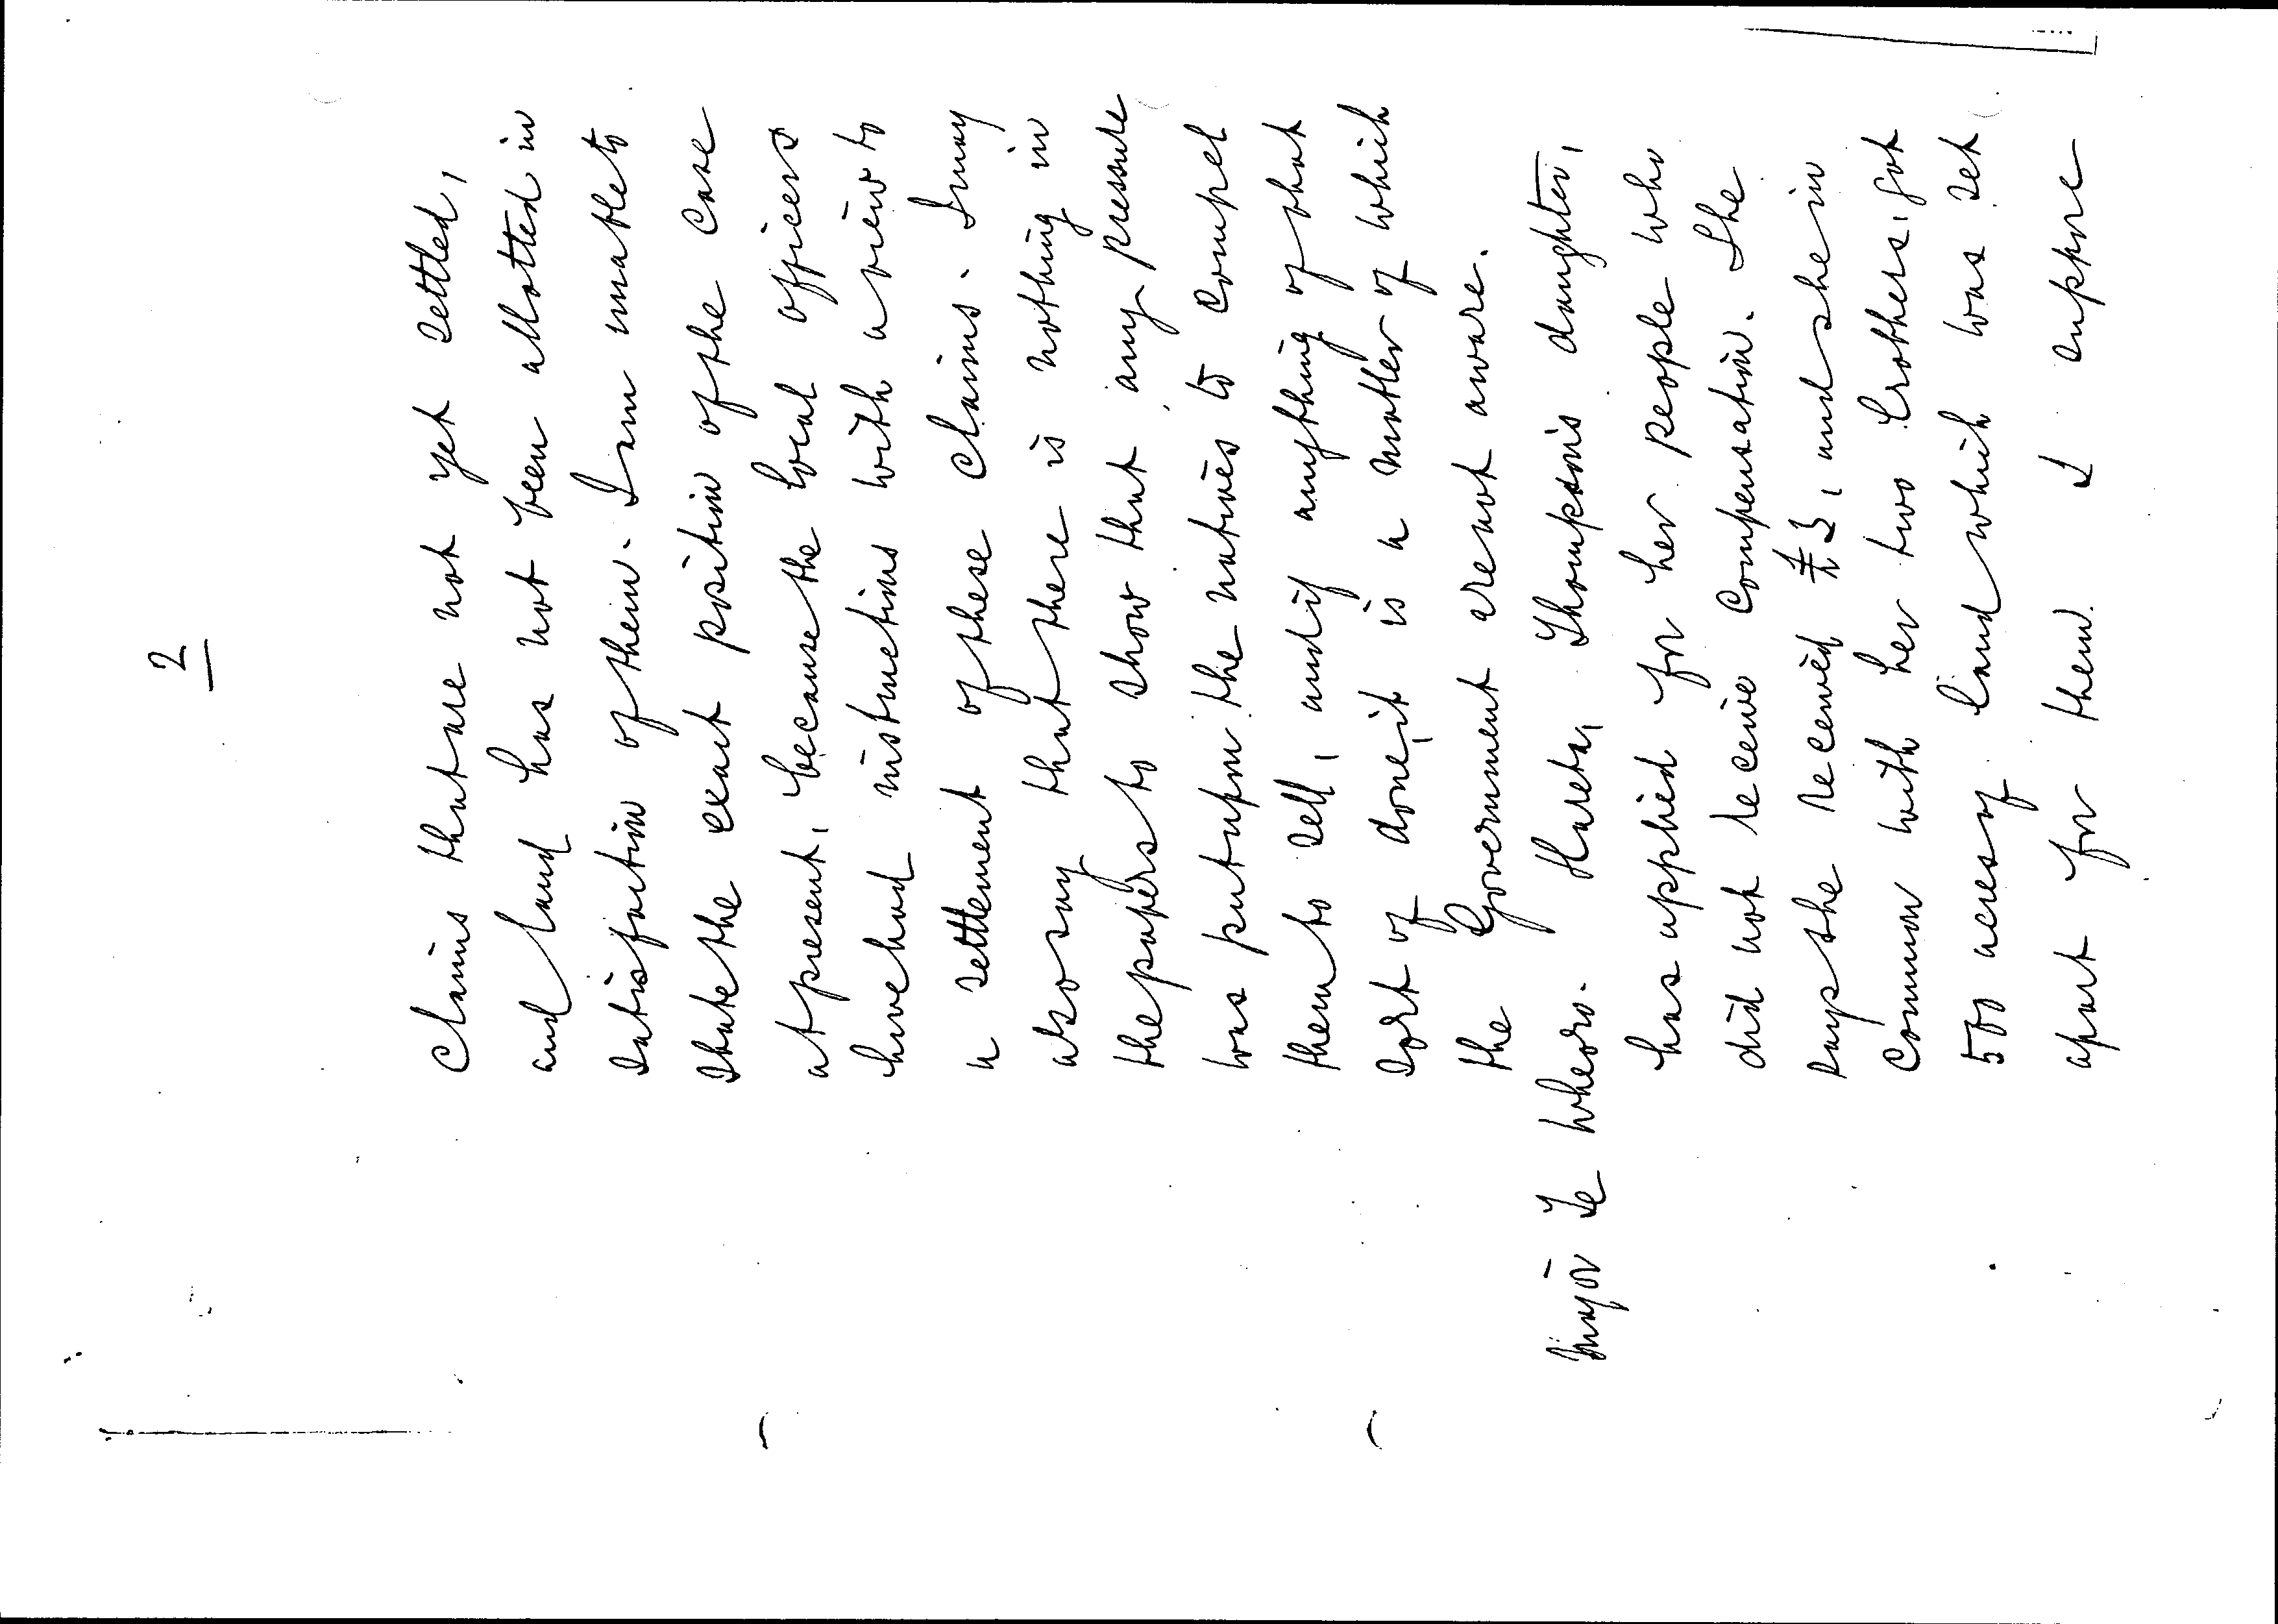 2
Claims that are not yet settled,
and land has not been allotted in
satisfaction of them. I am unable to
state the exact position of the case
at present, because the local officers
have had instructions with a view to
a settlement of these claims. I may
also say that there is nothing in
the papers to show that any pressure
was put upon the natives to compel
them to sell, and if anything of that
sort of done, it is a matter of which
the Government are not aware.
Major Te Wheoro. Hareta, Thompson's daughter,
has applied for her people who
did not receive compensation. She
says she received £3, and she in
common with her two brothers, got
500 acres of land which was set
apart for them. I suppose